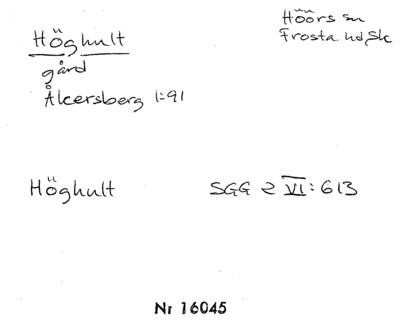 Höghult
Höörs sn
Frosta hd, Sk
gård
Åkersberg 1:91
Höghult SGG 2 VI:613
Nr 16045